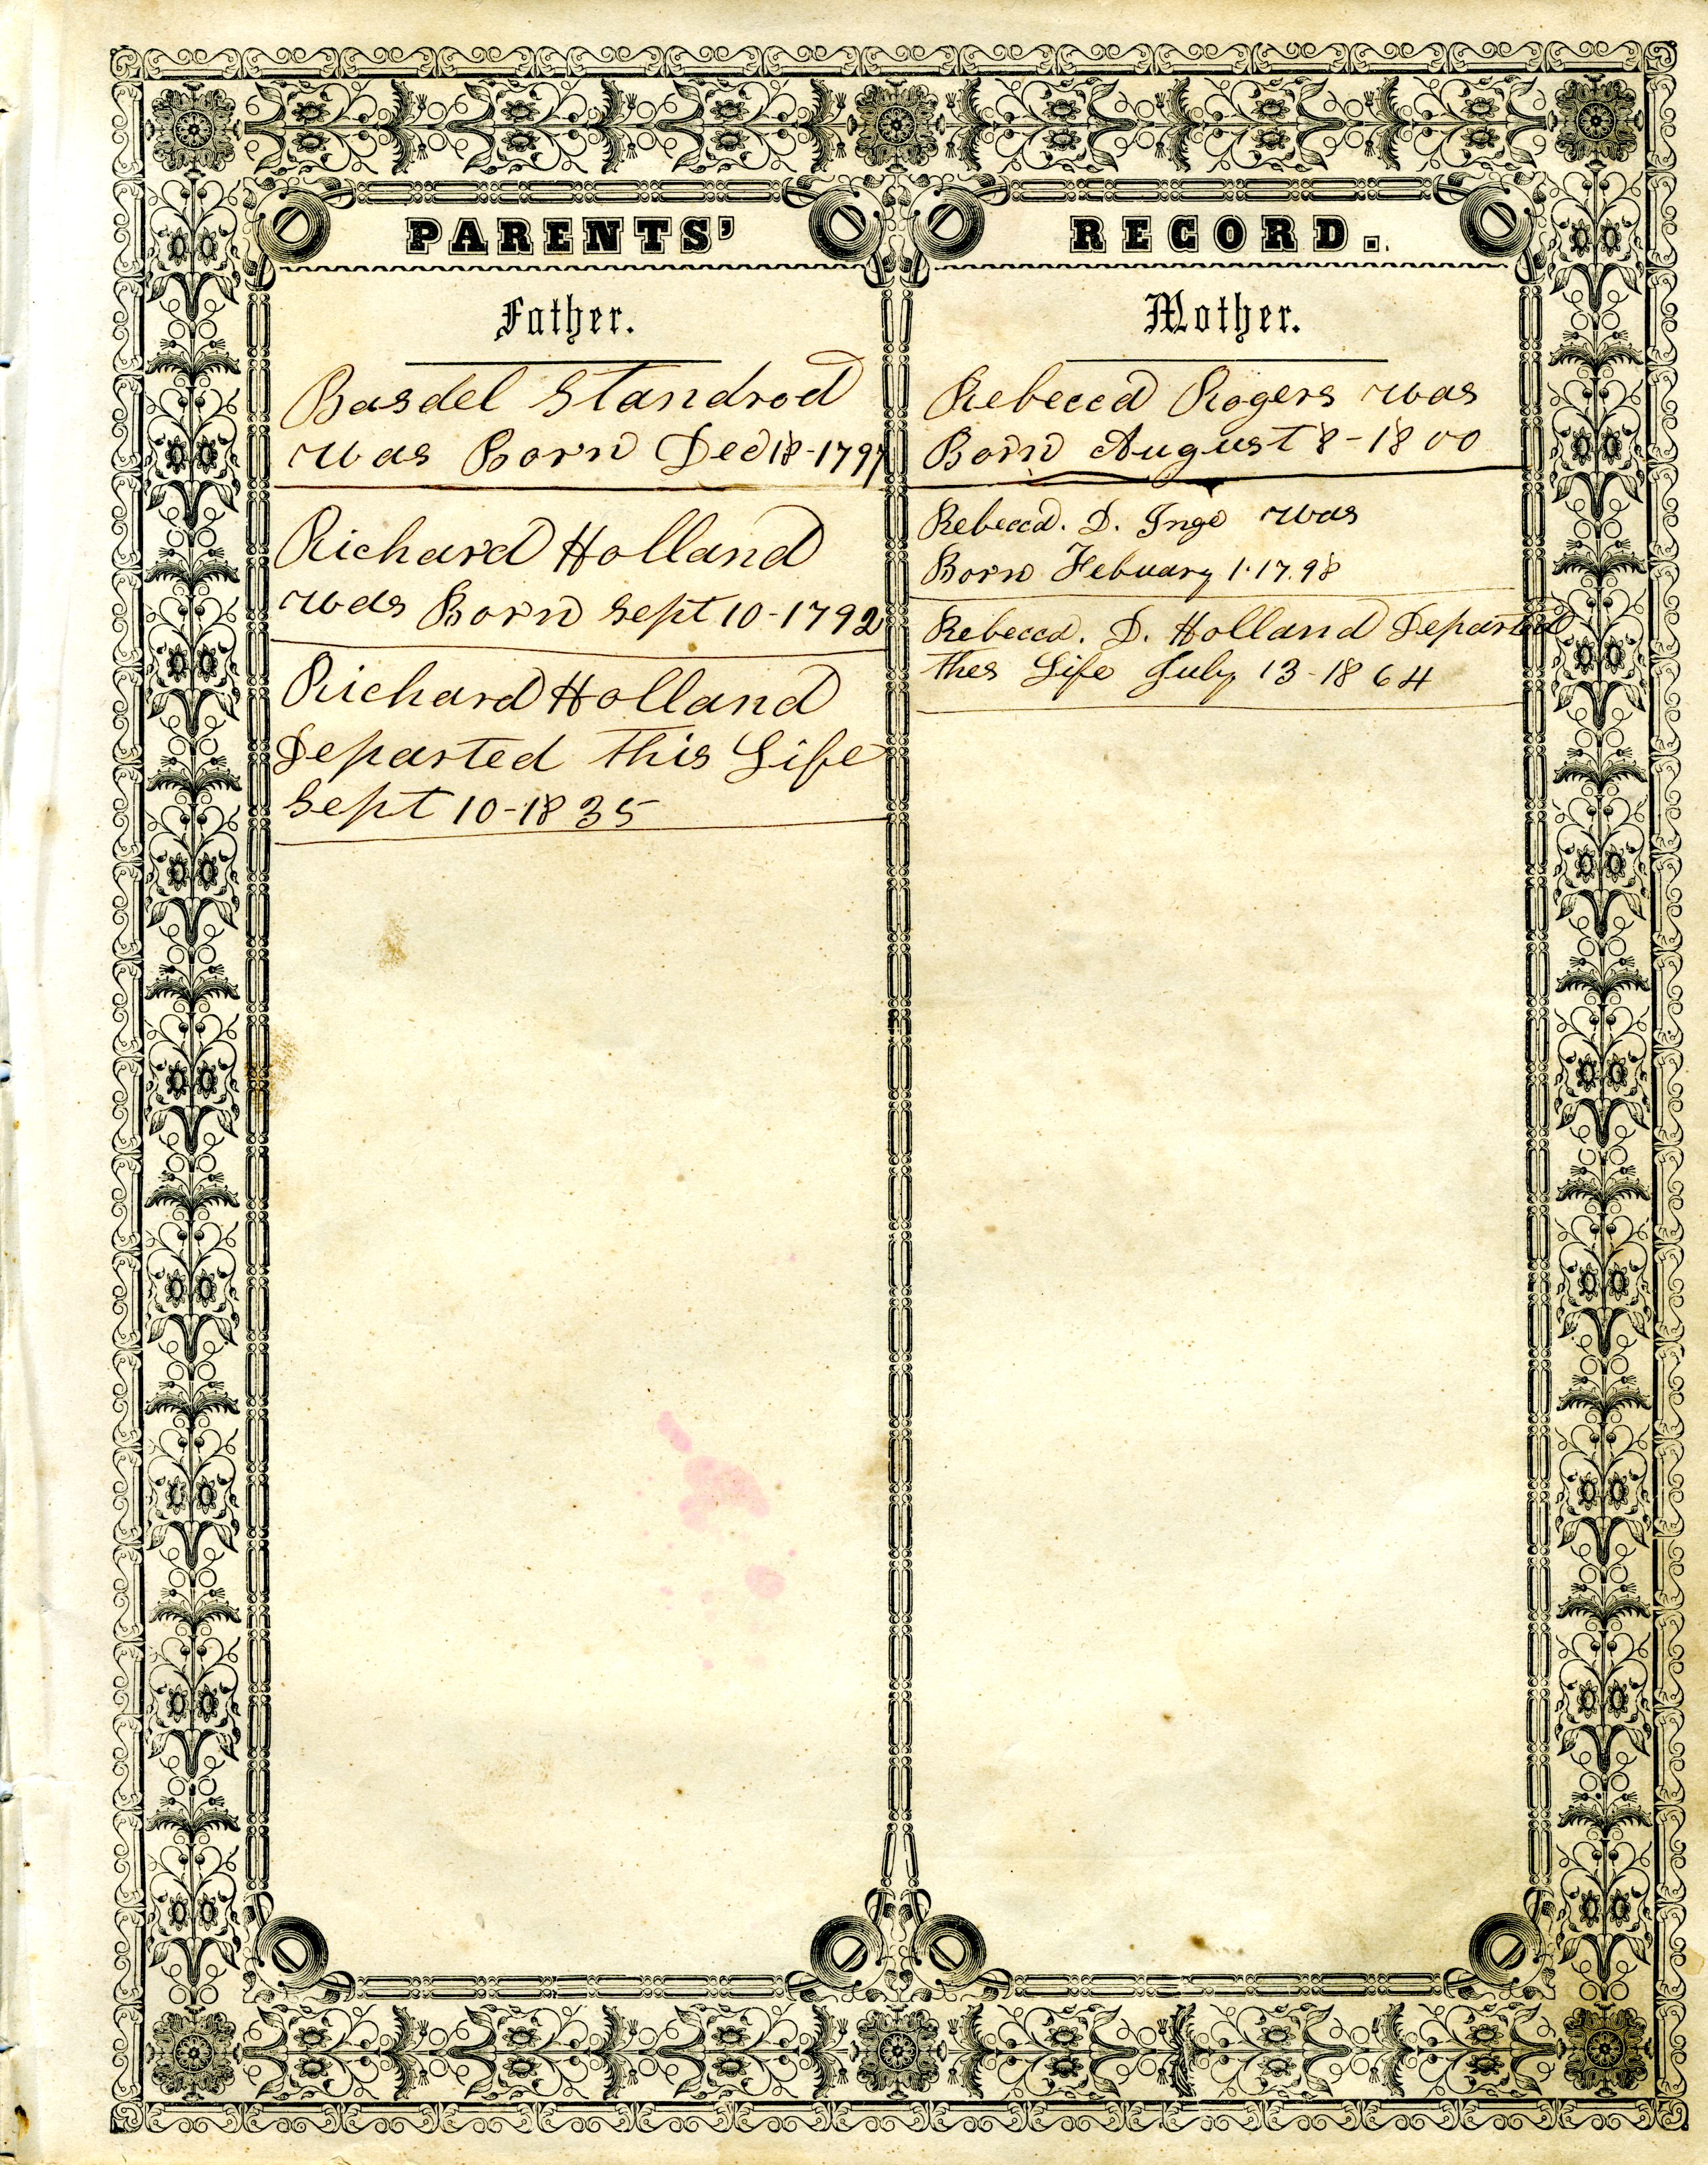 PARENTS' RECORD.
Father.
Basdel Standrod
was Born Dec 18-1797
Richard Holland
was Born Sept 10-1792
Richard Holland
Departed this Life
Sept 10-1835
Mother.
Rebecca Rogers was
Born August 8-1800
Rebecca. D. Inge was
Born Febuary 1.17.98
Rebecca. D. Holland Departed
thes Life July 13-1864